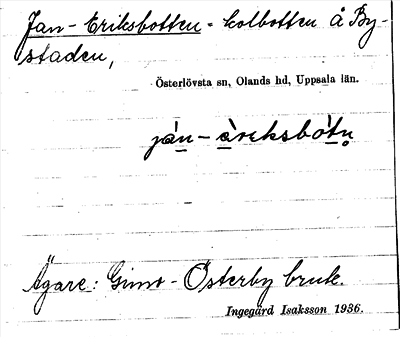 Jan-Eriksbotten = kolbotten å By-
staden,
Österlövsta sn, Olands hd, Uppsala län.
Ägare: Gimo-Österby bruk.
Ingegärd Isaksson 1936.